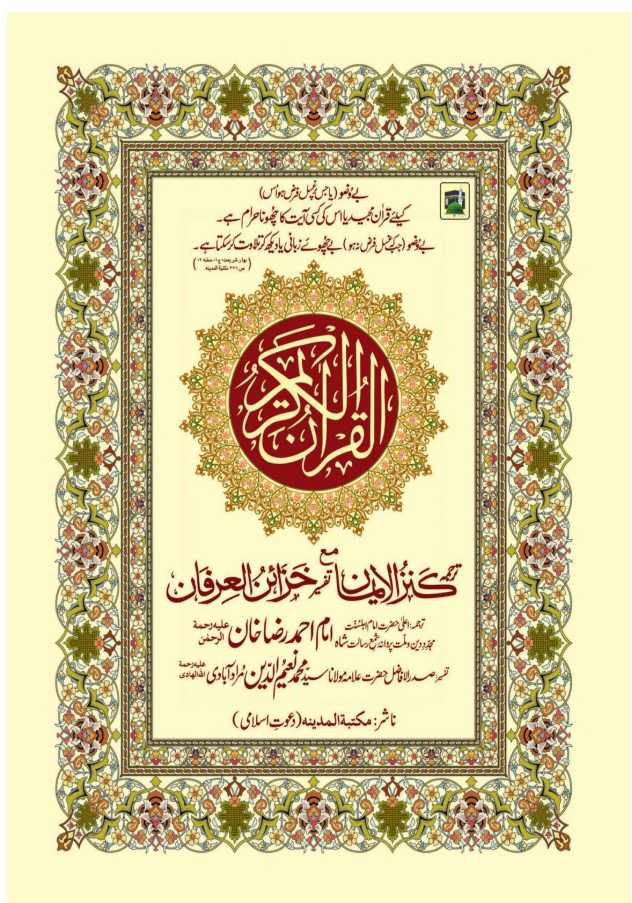 بے وُضو (یا جس پر غسل فرض ہو اس)
کیلئے قراٰنِ مجید یا اس کی کسی آیت کا چھونا حرام ہے۔
بے وُضو (جبکہ غسل فرض نہ ہو) بے چھوئے زبانی یا دیکھ کر تلاوت کر سکتا ہے۔
(بہارِ شریعت، ج۱، حصّہ ۲،
ص ۳۲۶ مکتبۃ المدینہ)
القرآن الکریم
ترجمہ کنز الایمان مع تفسیر خزائن العرفان
ترجمہ: اعلیٰ حضرت امام اہلسنّت
مجدِّدِ دین وملّت پروانۂ شمعِ رسالت شاہ امام احمد رضا خان علیہ رحمۃ الرحمٰن
تفسیر: صدر الافاضل حضرت علامہ مولانا سیّد محمد نعیم الدین مُراد آبادی علیہ رحمۃ اللہ الھادی
ناشر: مکتبۃ المدینہ (دعوتِ اسلامی)